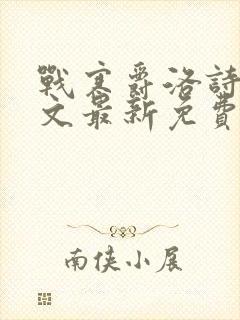 戰寒爵洛詩
文最新免費
南俠小展